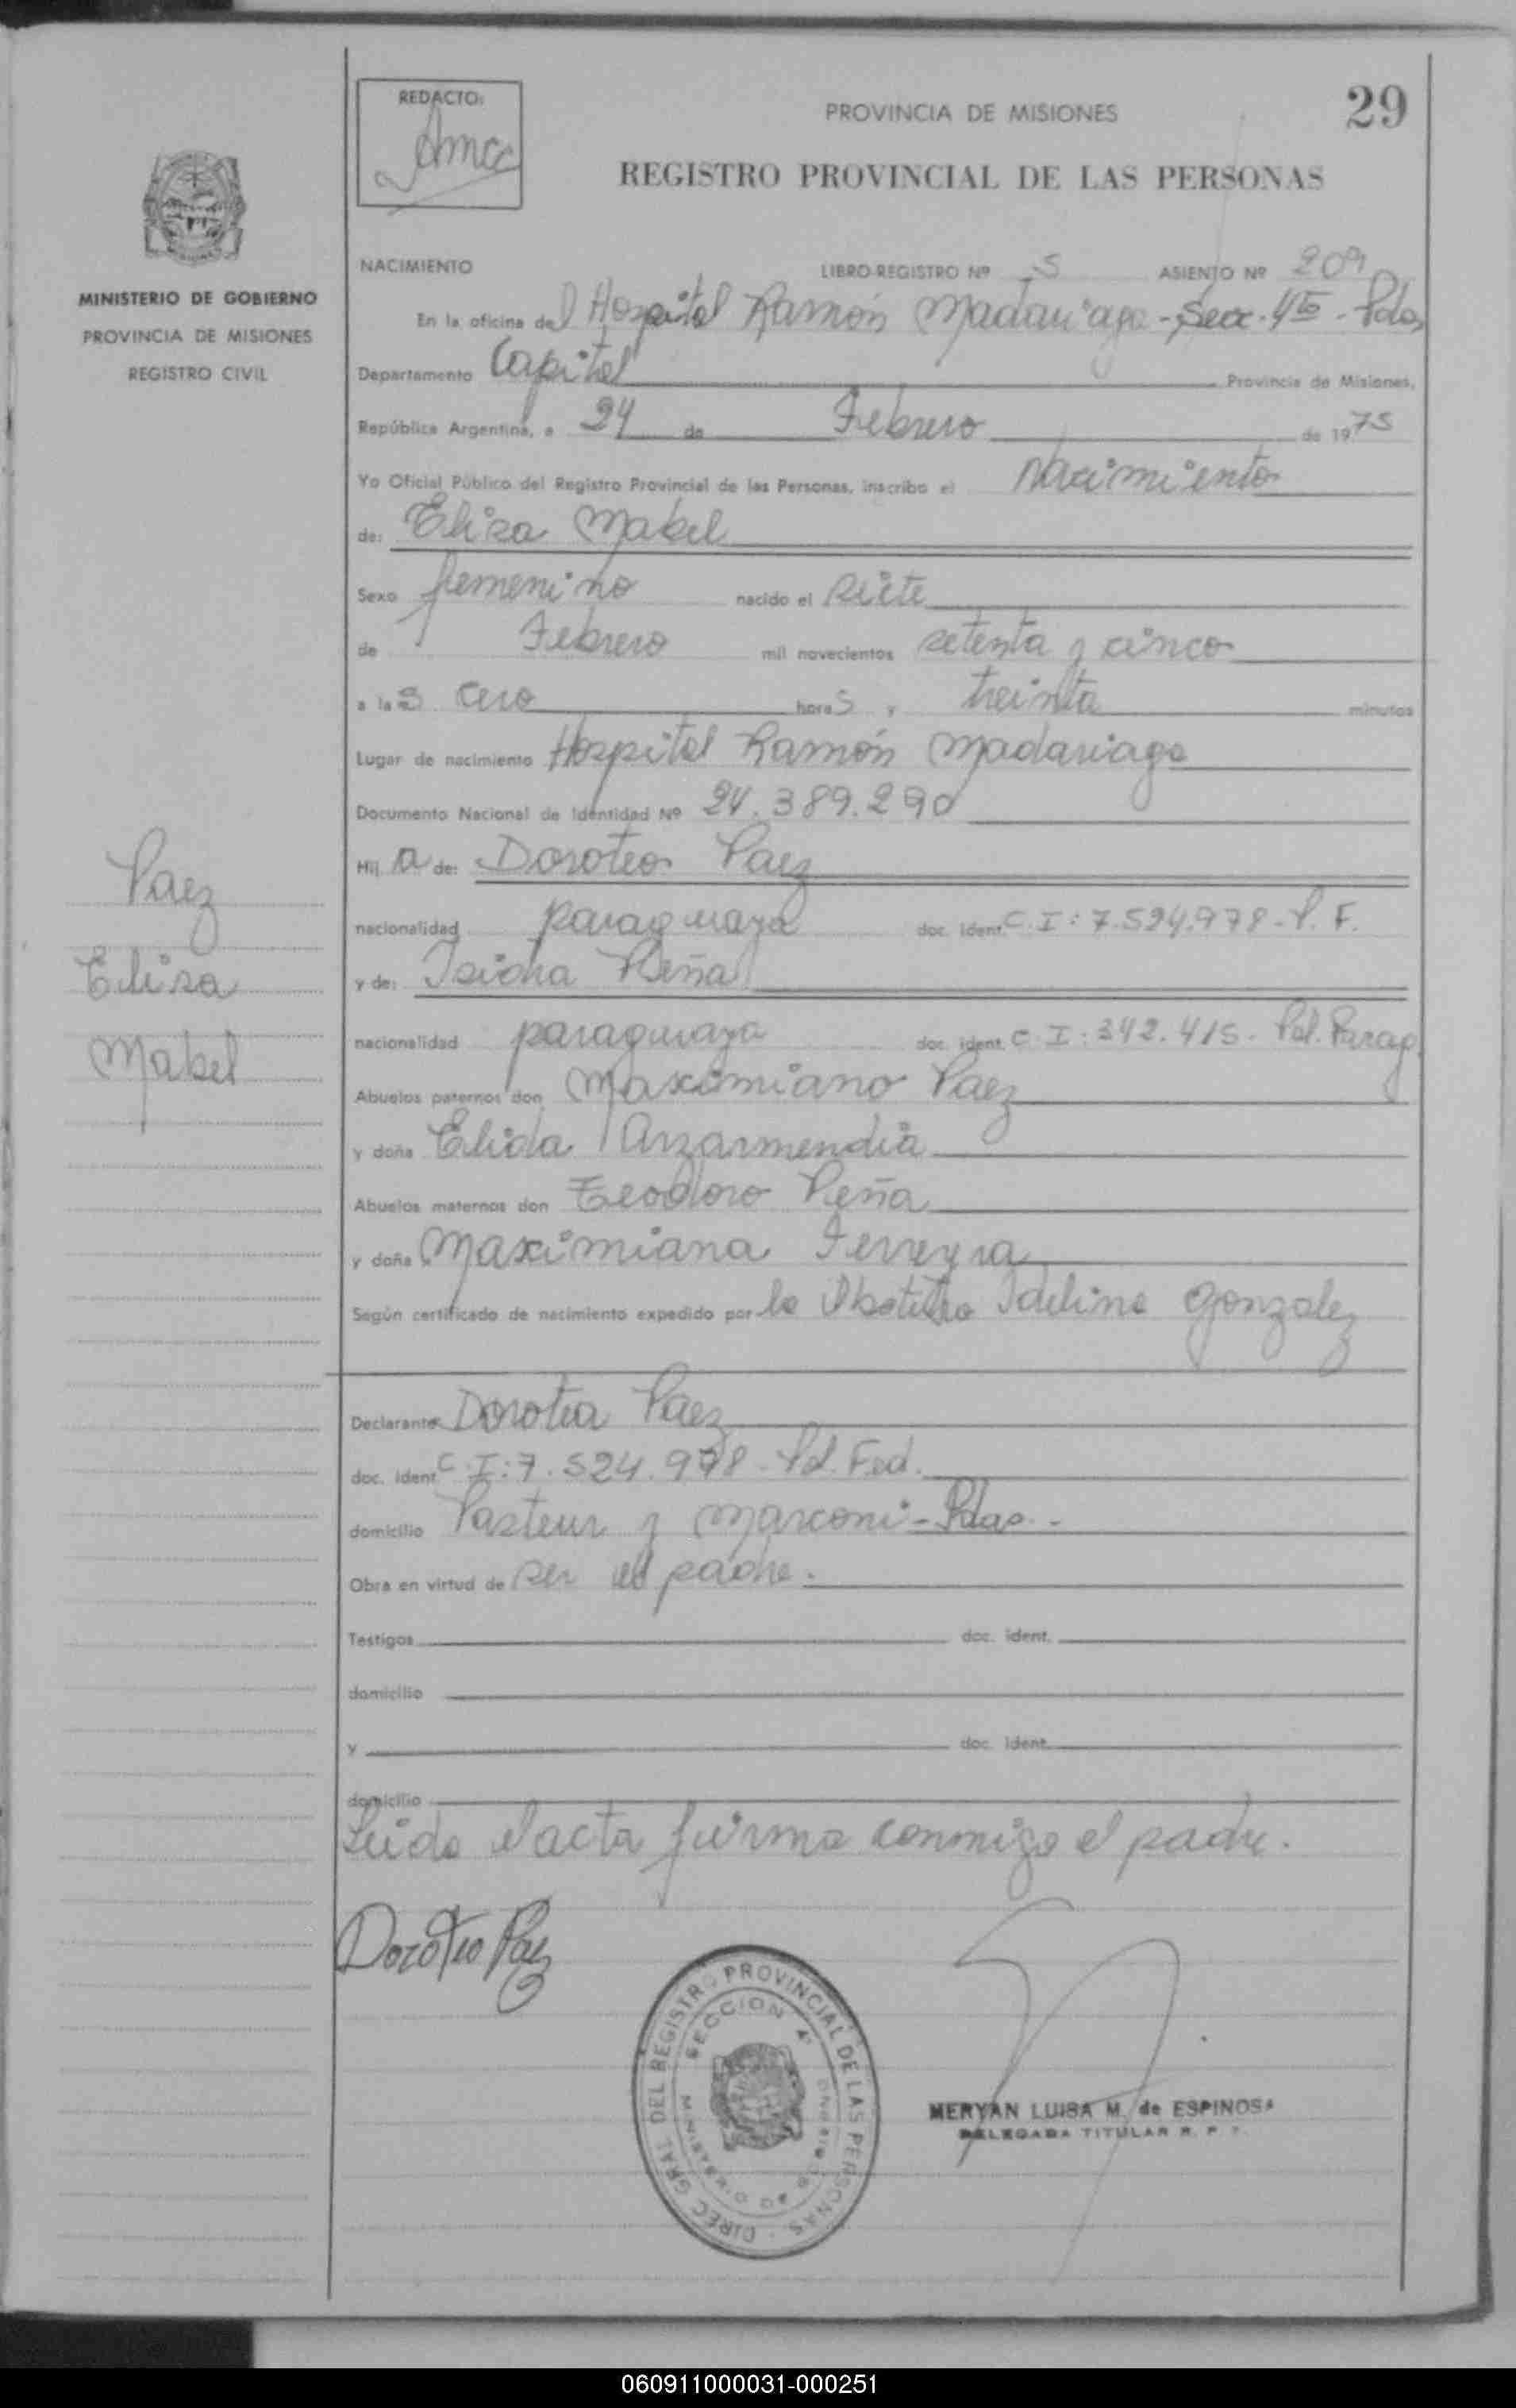 REDACTO:
PROVINCIA DE MISIONES
29
REGISTRO PROVINCIAL DE LAS PERSONAS
MINISTERIO DE GOBIERNO
PROVINCIA DE MISIONES
REGISTRO CIVIL
NACIMIENTO LIBRO-REGISTRO Nº 5 ASIENTO Nº 209
En la oficina del Hospital Ramón Madariaga - Secc. 4ta - Pdas
Departamento Capital Provincia de Misiones,
República Argentina, a 24 de Febrero de 1975
Yo Oficial Público del Registro Provincial de las Personas, inscribo el Nacimiento
de: Elisa Mabel
Sexo femenino nacido el siete
de Febrero mil novecientos setenta y cinco
a las cero horas y treinta minutos
Lugar de nacimiento Hospital Ramón Madariaga
Documento Nacional de Identidad Nº 24.389.290
Hija de: Doroteo Paez
nacionalidad paraguaya doc. ident. C.I: 7.524.978 - P. F.
y de: Isidra Peña
nacionalidad paraguaya doc. ident. C.I: 342.415 - Pol. Parag.
Abuelos paternos don Maximiano Paez
y doña Elida Arzarmendia
Abuelos maternos don Teodoro Peña
y doña Maximiana Ferreyra
Según certificado de nacimiento expedido por la Idelina Gonzalez
Paez
Elisa
Mabel
Declarante Dorotea Paez
doc. ident. C.I: 7.524.978 - Pol. Fed.
domicilio Pasteur y Marconi - Pdas. -
Obra en virtud de ser el padre.
Testigos doc. ident.
domicilio
y doc. ident.
domicilio
Leida el acta firma conmigo el padre.
Doroteo Paez
DIREC. GRAL. DEL REGISTRO PROVINCIAL DE LAS PERSONAS
SECCION 4ª
MINISTERIO DE GOBIERNO
MERYAN LUISA M. de ESPINOSA
DELEGADA TITULAR R. P. P.
060911000031-000251